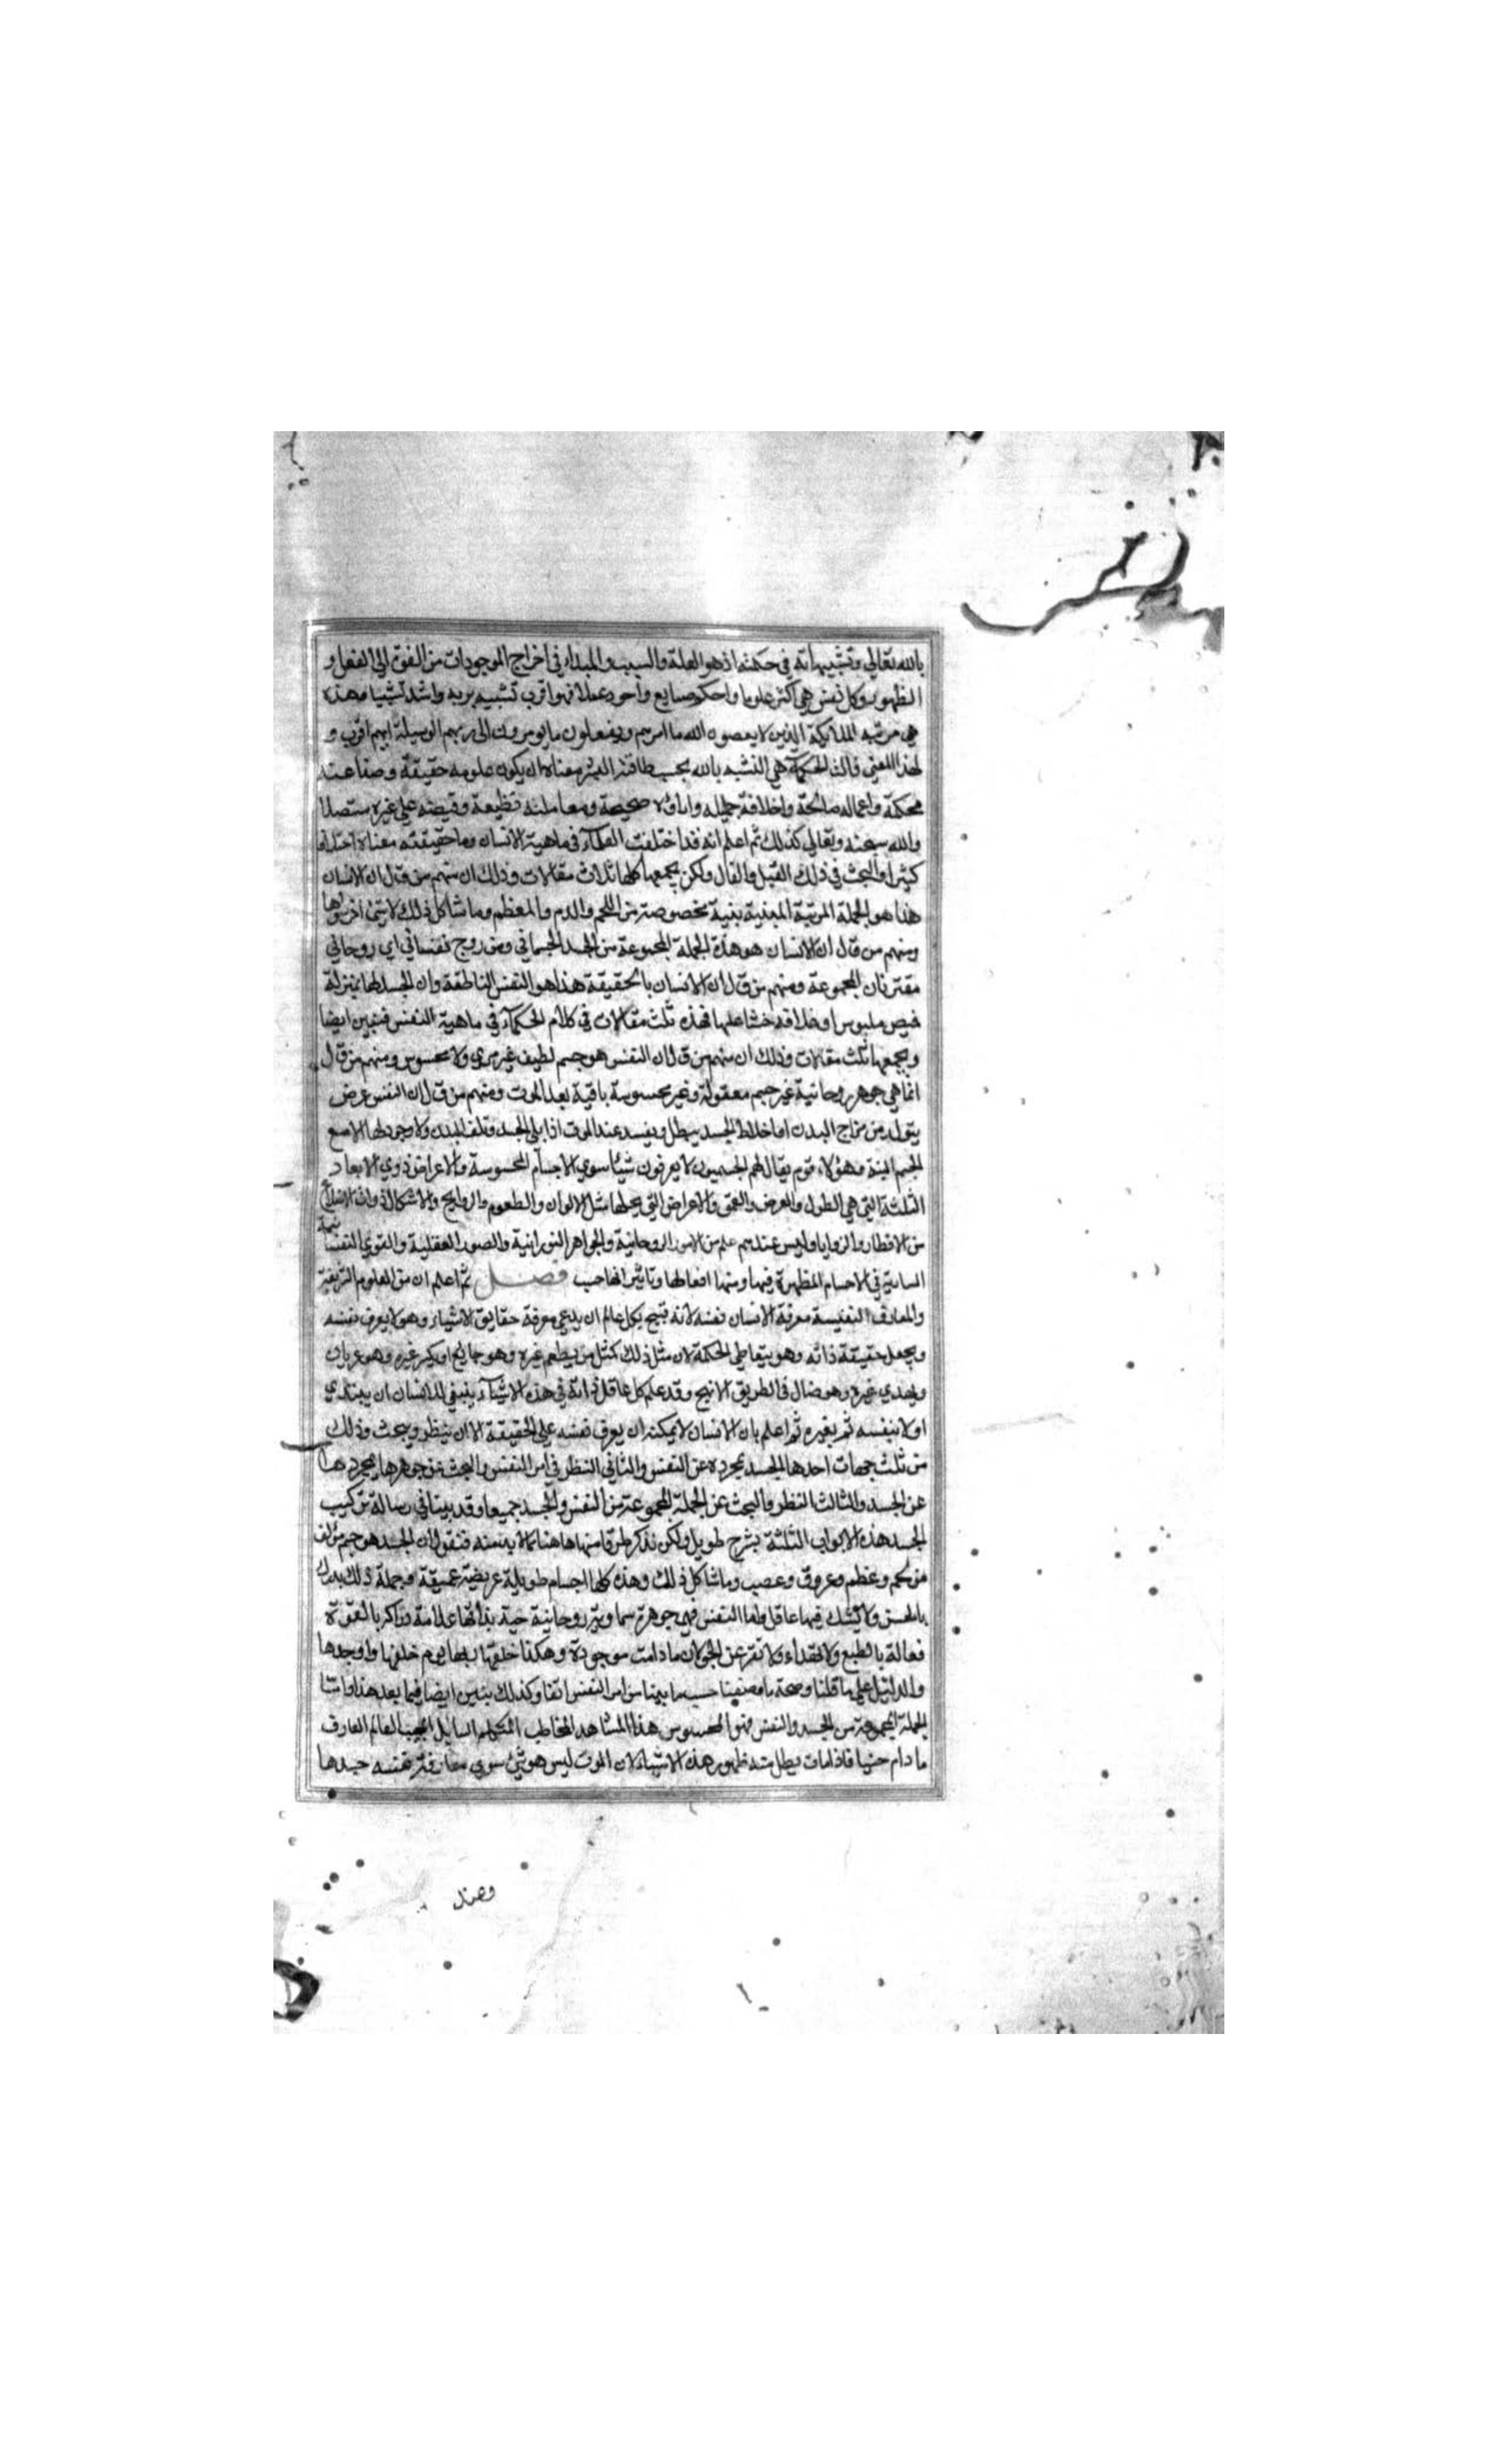 بالله تعالى وتشبيهاته في حكمته اذ هو العلة والسبب والمبداء في اخراج الموجودات من القوة الى الفعل و
الظهور وكل نفس هي اكثر علوما واحكم صنايع واجود عملا فهو اقرب تشبيه بربه واشد تشبيا وهذه
هي مرتبة الملايكة الذين لا يعصون الله ما امرهم ويفعلون ما يومرون الى ربهم الوسيلة ايهم اقرب و
لهذا المعني قالت الحكمآء هي التشبه بالله بحسب طاقة البشر معناه ان يكون علومه حقيقة وصناعته
محكمة واعماله صالحة واخلاقه جميله واراؤه صحيحة ومعاملته نظيفة وفيضه على غيره متصلا
والله سبحنه وتعالى كذلك ثم اعلم انه قد اختلفت العلمآء في ماهية الانسان وما حقيقته معناه اختلافا
كثيرا والبحث في ذلك القيل والقال ولكن يجمعها كلها ثلاث مقالات وذلك ان منهم من قال ان الانسان
هذا هو الجملة المرتبة المبنية بنية مخصوصة من اللحم والدم والعظم وما شاكل ذلك لا شئ اخر سواها
ومنهم من قال ان الانسان هو هذه الجملة المجموعة من الجسد الجسماني ومن روح نفساني اي روحاني
مقترنان المجموعة ومنهم من قال ان الانسان بالحقيقة هذا هو النفس الناطقة وان الجسد لها بمنزلة
قميص ملبوس او غلاف قد غشا عليها فهذه ثلث مقالات في كلام الحكمآء في ماهية النفس فنبين ايضا
ويجمعها ثلث مقالات وذلك ان منهم من قال ان النفس هو جسم لطيف غير مري ولا محسوس ومنهم من قال
انما هي جوهر روحانية غير جسم معقولة وغير محسوسة باقية بعد الموت ومنهم من قال ان النفس عرض
يتولد من مزاج البدن اما خلاط الجسد يبطل ويفسد عند الموت اذا بلي الجسد وتلف البدن ولا وجود لها الا مع
الجسم البتة وهؤلاء قوم يقال لهم الجسميون لا يعرفون شيئا سوي الاجسام المحسوسة والاعراض ذوي الابعاد
الثلثة التي هي الطول والعرض والعمق والاعراض التي يحلها مثل الالوان والطعوم والروايح والاشكال ذوات الاضلاع
من الاقطار والزوايا وليس عندهم علم من الامور الروحانية والجواهر النورانية والصور العقلية والقوي النفسانية
السارية في الاجسام المظهرة فيها ومنها افعالها وتاثيراتها حسب فصل ثم اعلم ان من العلوم الشريفة
والمعارف النفيسة معرفة الانسان نفسه لانه قبيح بكل عالم ان يدعي معرفة حقايق الاشياء وهو لا يعرف نفسه
ويجهل حقيقة ذاته وهو يتعاطي الحكمة لان مثل ذلك كمثل من يطعم غيره وهو جايع او يكسي غيره وهو عريان
ويهدي غيره وهو ضال في الطريق الانهج وقد علم كل عاقل انه في هذه الاشيآء ينبغي للانسان ان يبتدي
اولا بنفسه ثم بغيره ثم اعلم بان الانسان لا يمكنه ان يعرف نفسه على الحقيقة الا ان ينظر ويبحث وذلك
من ثلث جهات احدها الجسد بمجرده عن النفس والثاني النظر في امر النفس والبحث عن جوهرها بمجردها
عن الجسد والثالث النظر والبحث عن الجملة المجموعة من النفس والجسد جميعا وقد بينا في رسالة تركيب
الجسد هذه الابواب الثلثة بشرح طويل ولكن نذكر طرفا منها هاهنا مما لا بد منه فنقول ان الجسد هو جسم مؤلف
من لحم وعظم وعروق وعصب وما شاكل ذلك وهذه كلها اجسام طويلة عريضة عميقة وجملة ذلك يدرك
بالحس ولا يشك فيها عاقل واما النفس فهي جوهرة سماوية روحانية حية بذاتها علامة دراكة بالقوة
فعالة بالطبع ولا تهداء ولا تقر عن الجولان ما دامت موجودة وهكذا خلقها ربها يوم خلقها واوجدها
والدليل على ما قلنا وصحة ما وصفنا حسب ما بينا من امر النفس انفا وكذلك نبين ايضا فيما بعد هذا واما
الجملة المجموعة من الجسد والنفس فهو المحسوس هذا المشاهد المخاطب المتكلم السايل المجيب العالم العارف
ما دام حيا فاذا مات يبطل منه ظهور هذه الاشياء لان الموت ليس هو شئ سوي مفارقة نفسه جسدها